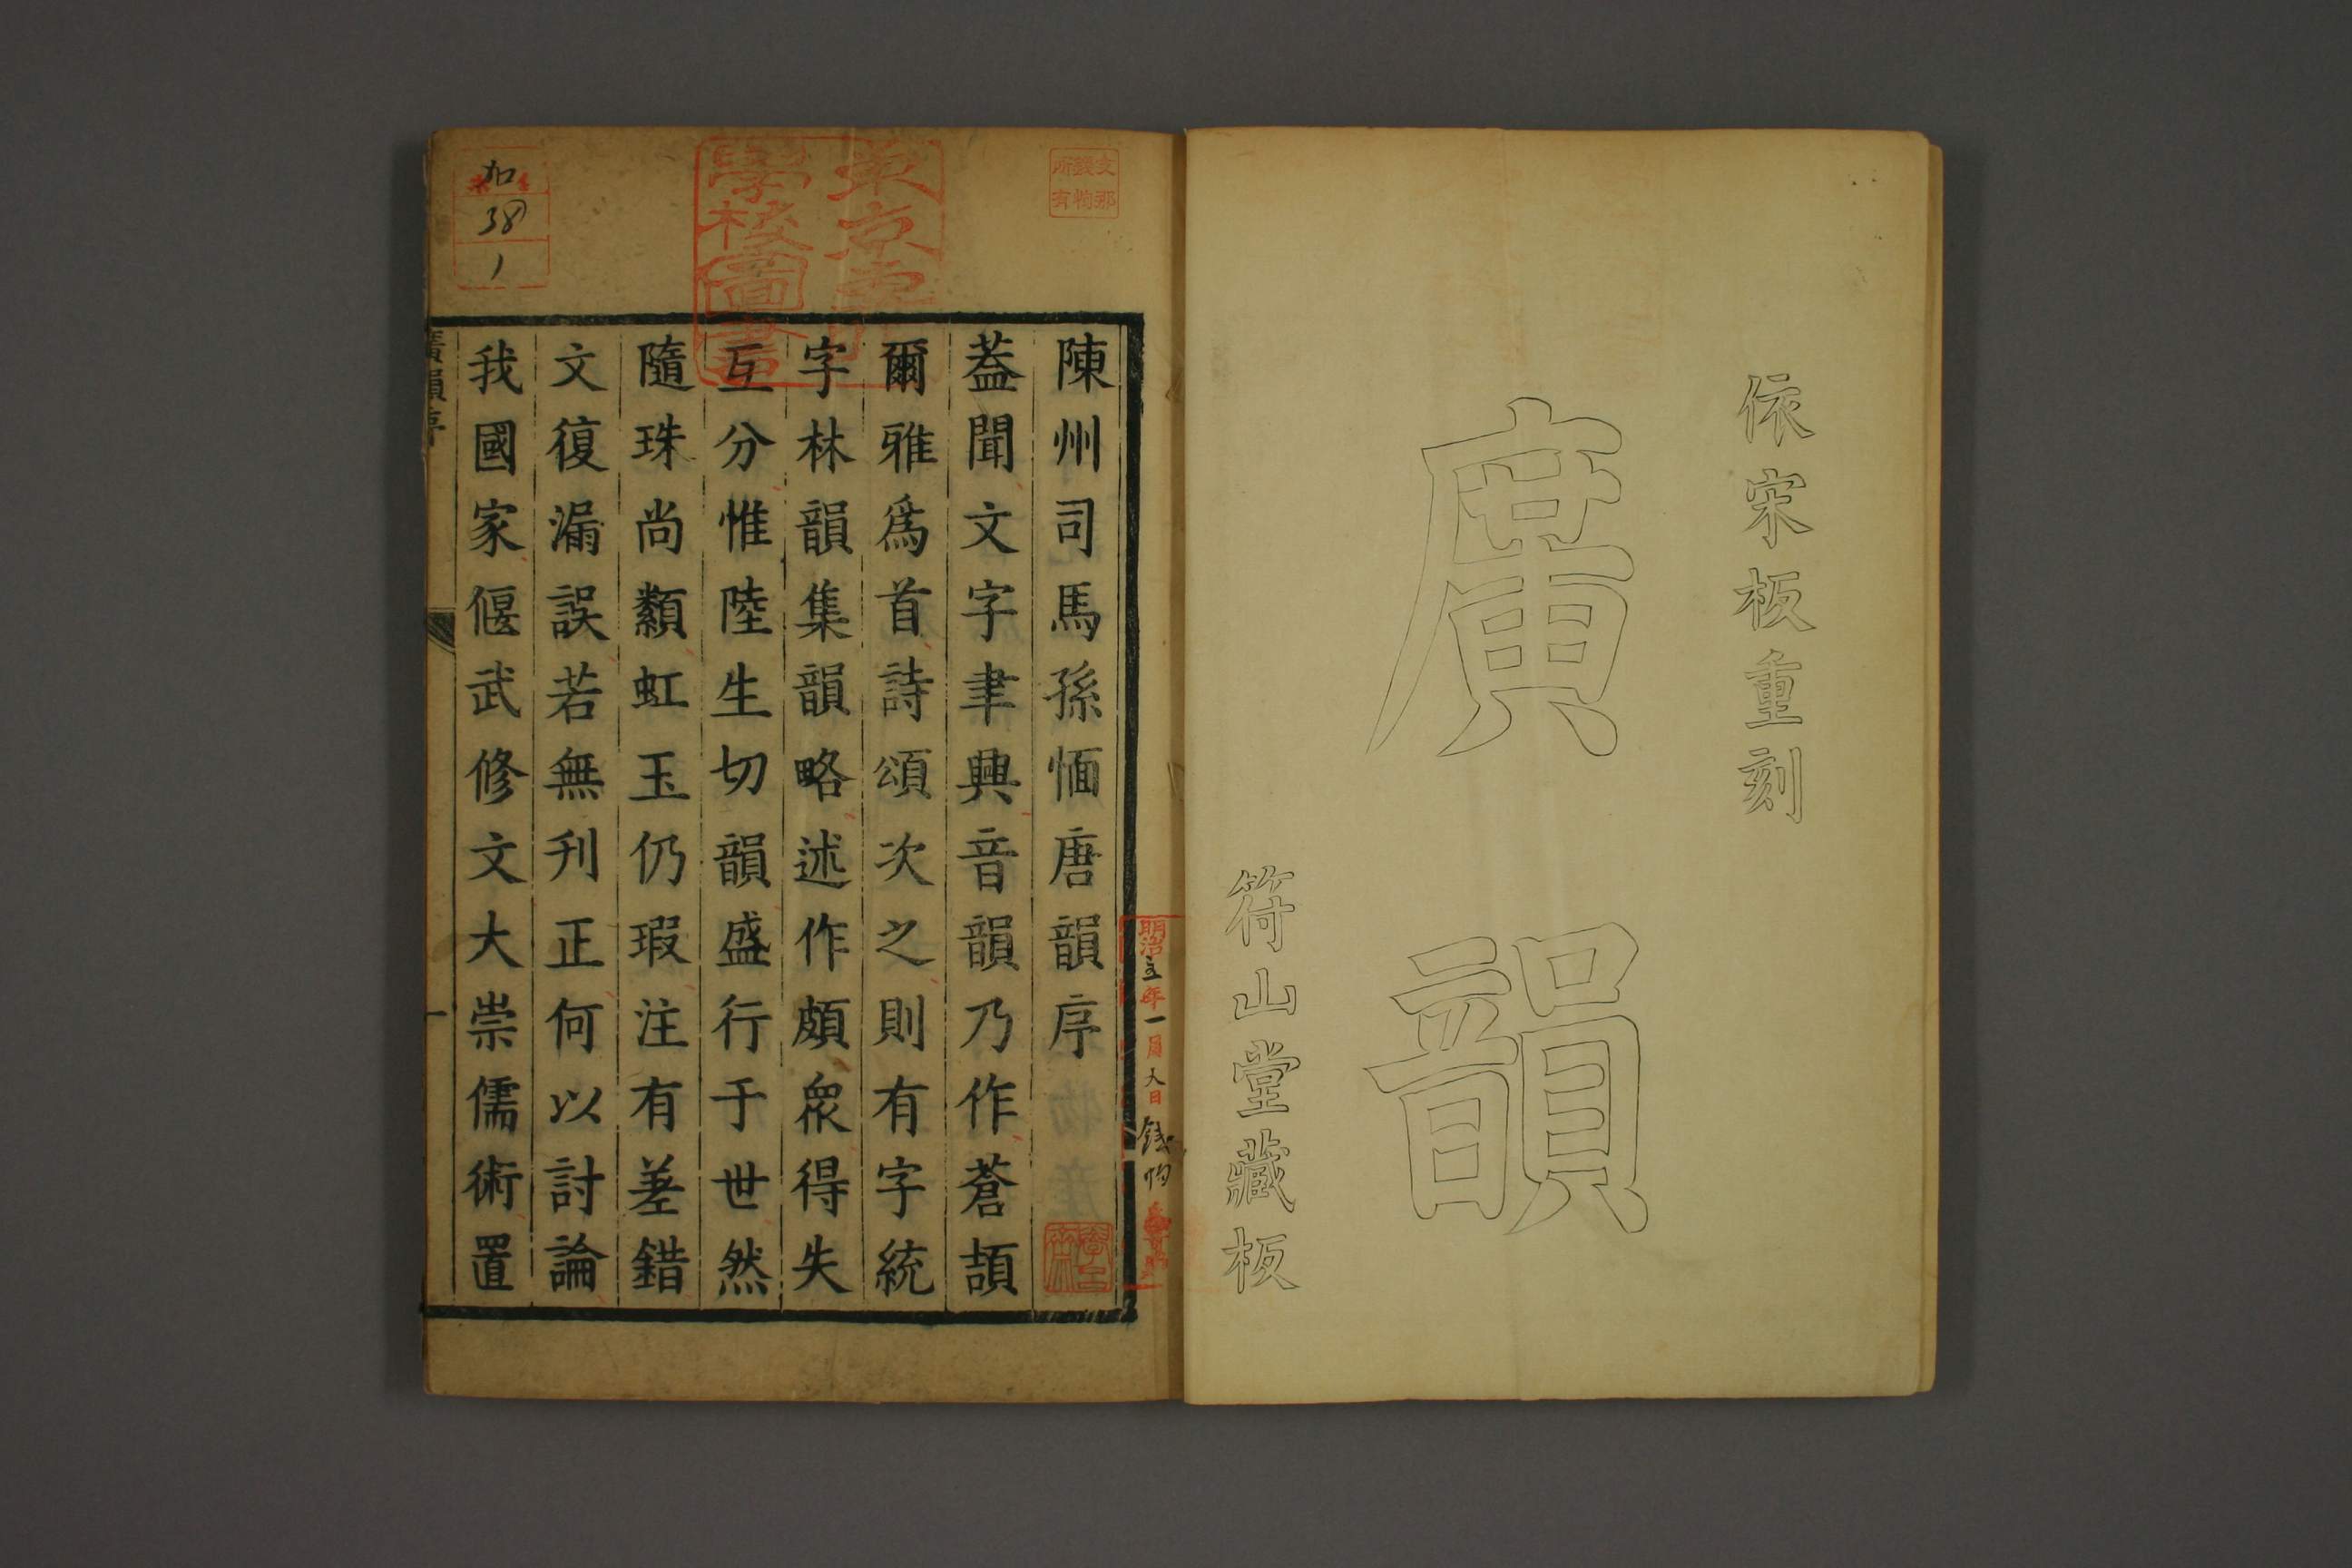 依宋板重刻
廣韻
符山堂藏板
陳州司馬孫愐唐韻序
蓋聞文字聿興音韻乃作蒼頡
爾雅爲首詩頌次之則有字統
字林韻集韻略述作頗衆得失
互分惟陸生切韻盛行于世然
隨珠尚纇虹玉仍瑕注有差錯
文復漏誤若無刊正何以討論
我國家偃武修文大崇儒術置
廣韻序
一
支那
錢恂
所有
學校圖書
加
38
1